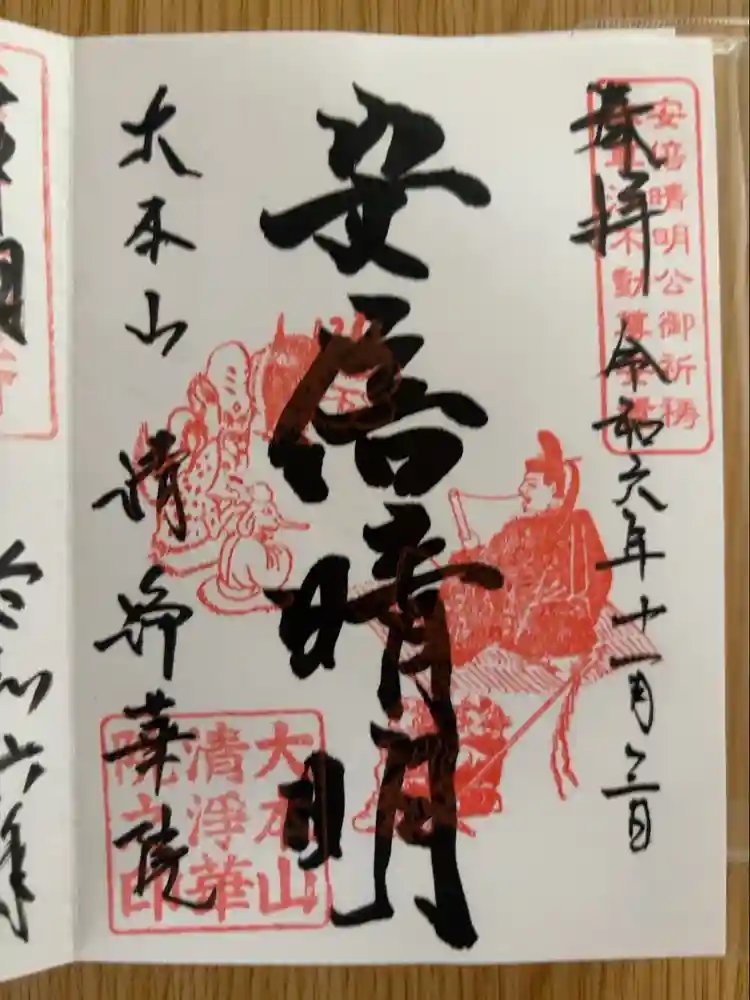 奉拝 令和六年十一月三日
安倍晴明公御祈祷
不動尊
安倍晴明
大本山 清浄華院
大本山
清浄華
院之印
令和六年